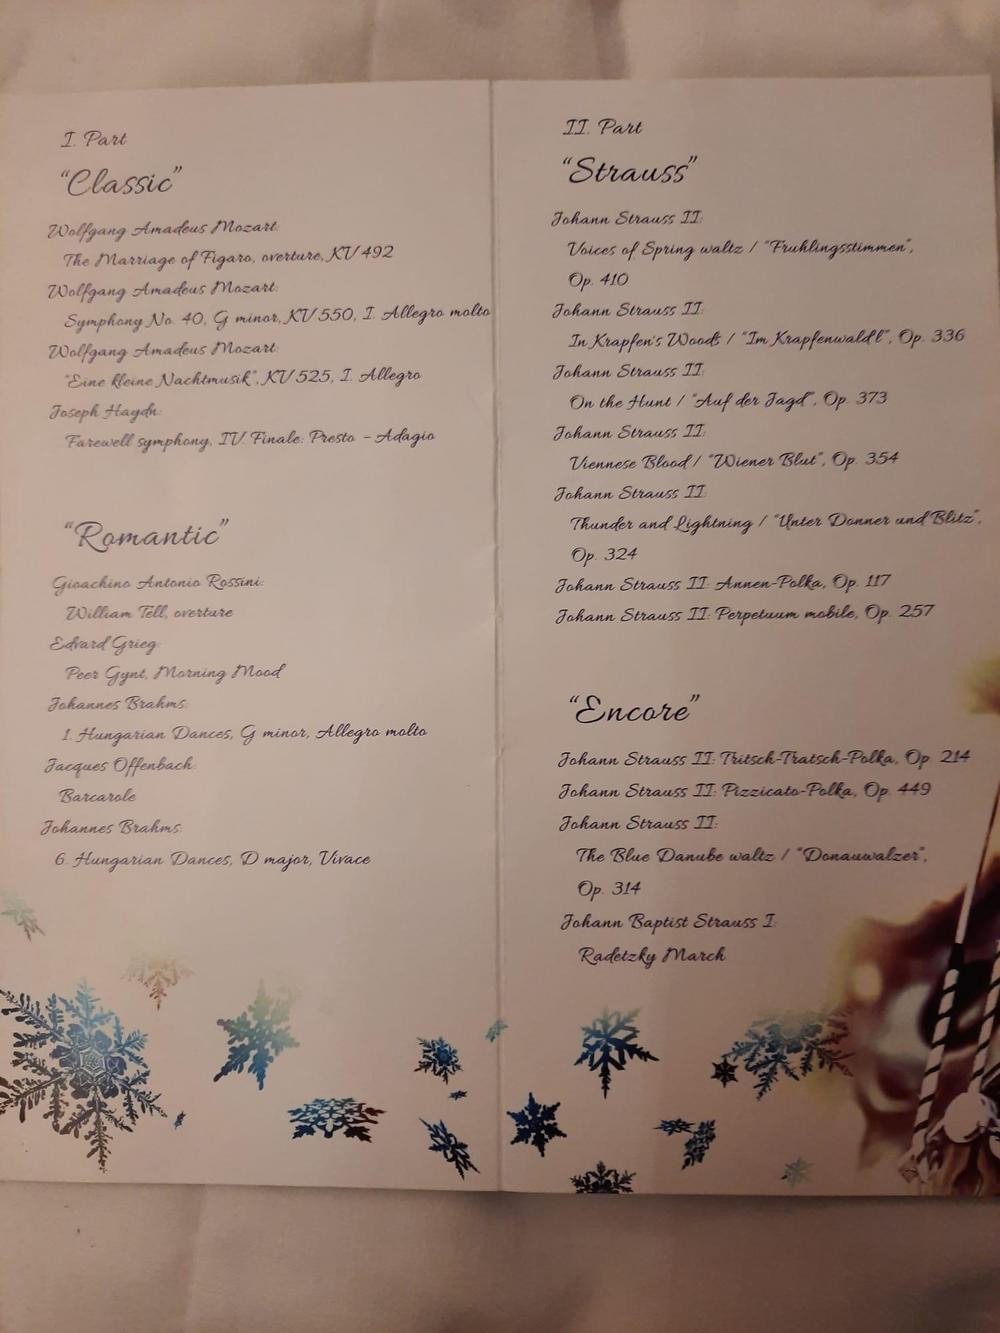 I. Part
"Classic"
Wolfgang Amadeus Mozart:
The Marriage of Figaro, overture, KV 492
Wolfgang Amadeus Mozart:
Symphony No. 40, G minor, KV 550, I. Allegro molto
Wolfgang Amadeus Mozart:
"Eine kleine Nachtmusik", KV 525, I. Allegro
Joseph Haydn:
Farewell symphony, IV. Finale: Presto – Adagio
"Romantic"
Gioachino Antonio Rossini:
William Tell, overture
Edvard Grieg:
Peer Gynt, Morning Mood
Johannes Brahms:
1. Hungarian Dances, G minor, Allegro molto
Jacques Offenbach:
Barcarole
Johannes Brahms:
6. Hungarian Dances, D major, Vivace
II. Part
"Strauss"
Johann Strauss II:
Voices of Spring waltz / "Fruhlingsstimmen",
Op. 410
Johann Strauss II:
In Krapfen's Woods / "Im Krapfenwald'l", Op. 336
Johann Strauss II:
On the Hunt / "Auf der Jagd", Op. 373
Johann Strauss II:
Viennese Blood / "Wiener Blut", Op. 354
Johann Strauss II:
Thunder and Lightning / "Unter Donner und Blitz",
Op. 324
Johann Strauss II: Annen-Polka, Op. 117
Johann Strauss II: Perpetuum mobile, Op. 257
"Encore"
Johann Strauss II: Tritsch-Tratsch-Polka, Op. 214
Johann Strauss II: Pizzicato-Polka, Op. 449
Johann Strauss II:
The Blue Danube waltz / "Donauwalzer",
Op. 314
Johann Baptist Strauss I:
Radetzky March